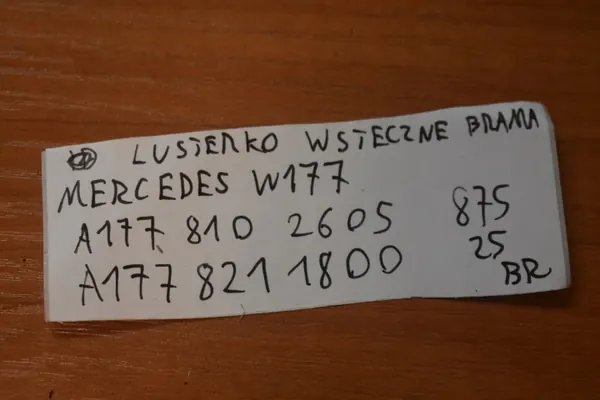 LUSTERKO WSTECZNE BRAMA
MERCEDES W177
A177 810 2605 875
A177 821 1800 25
BR